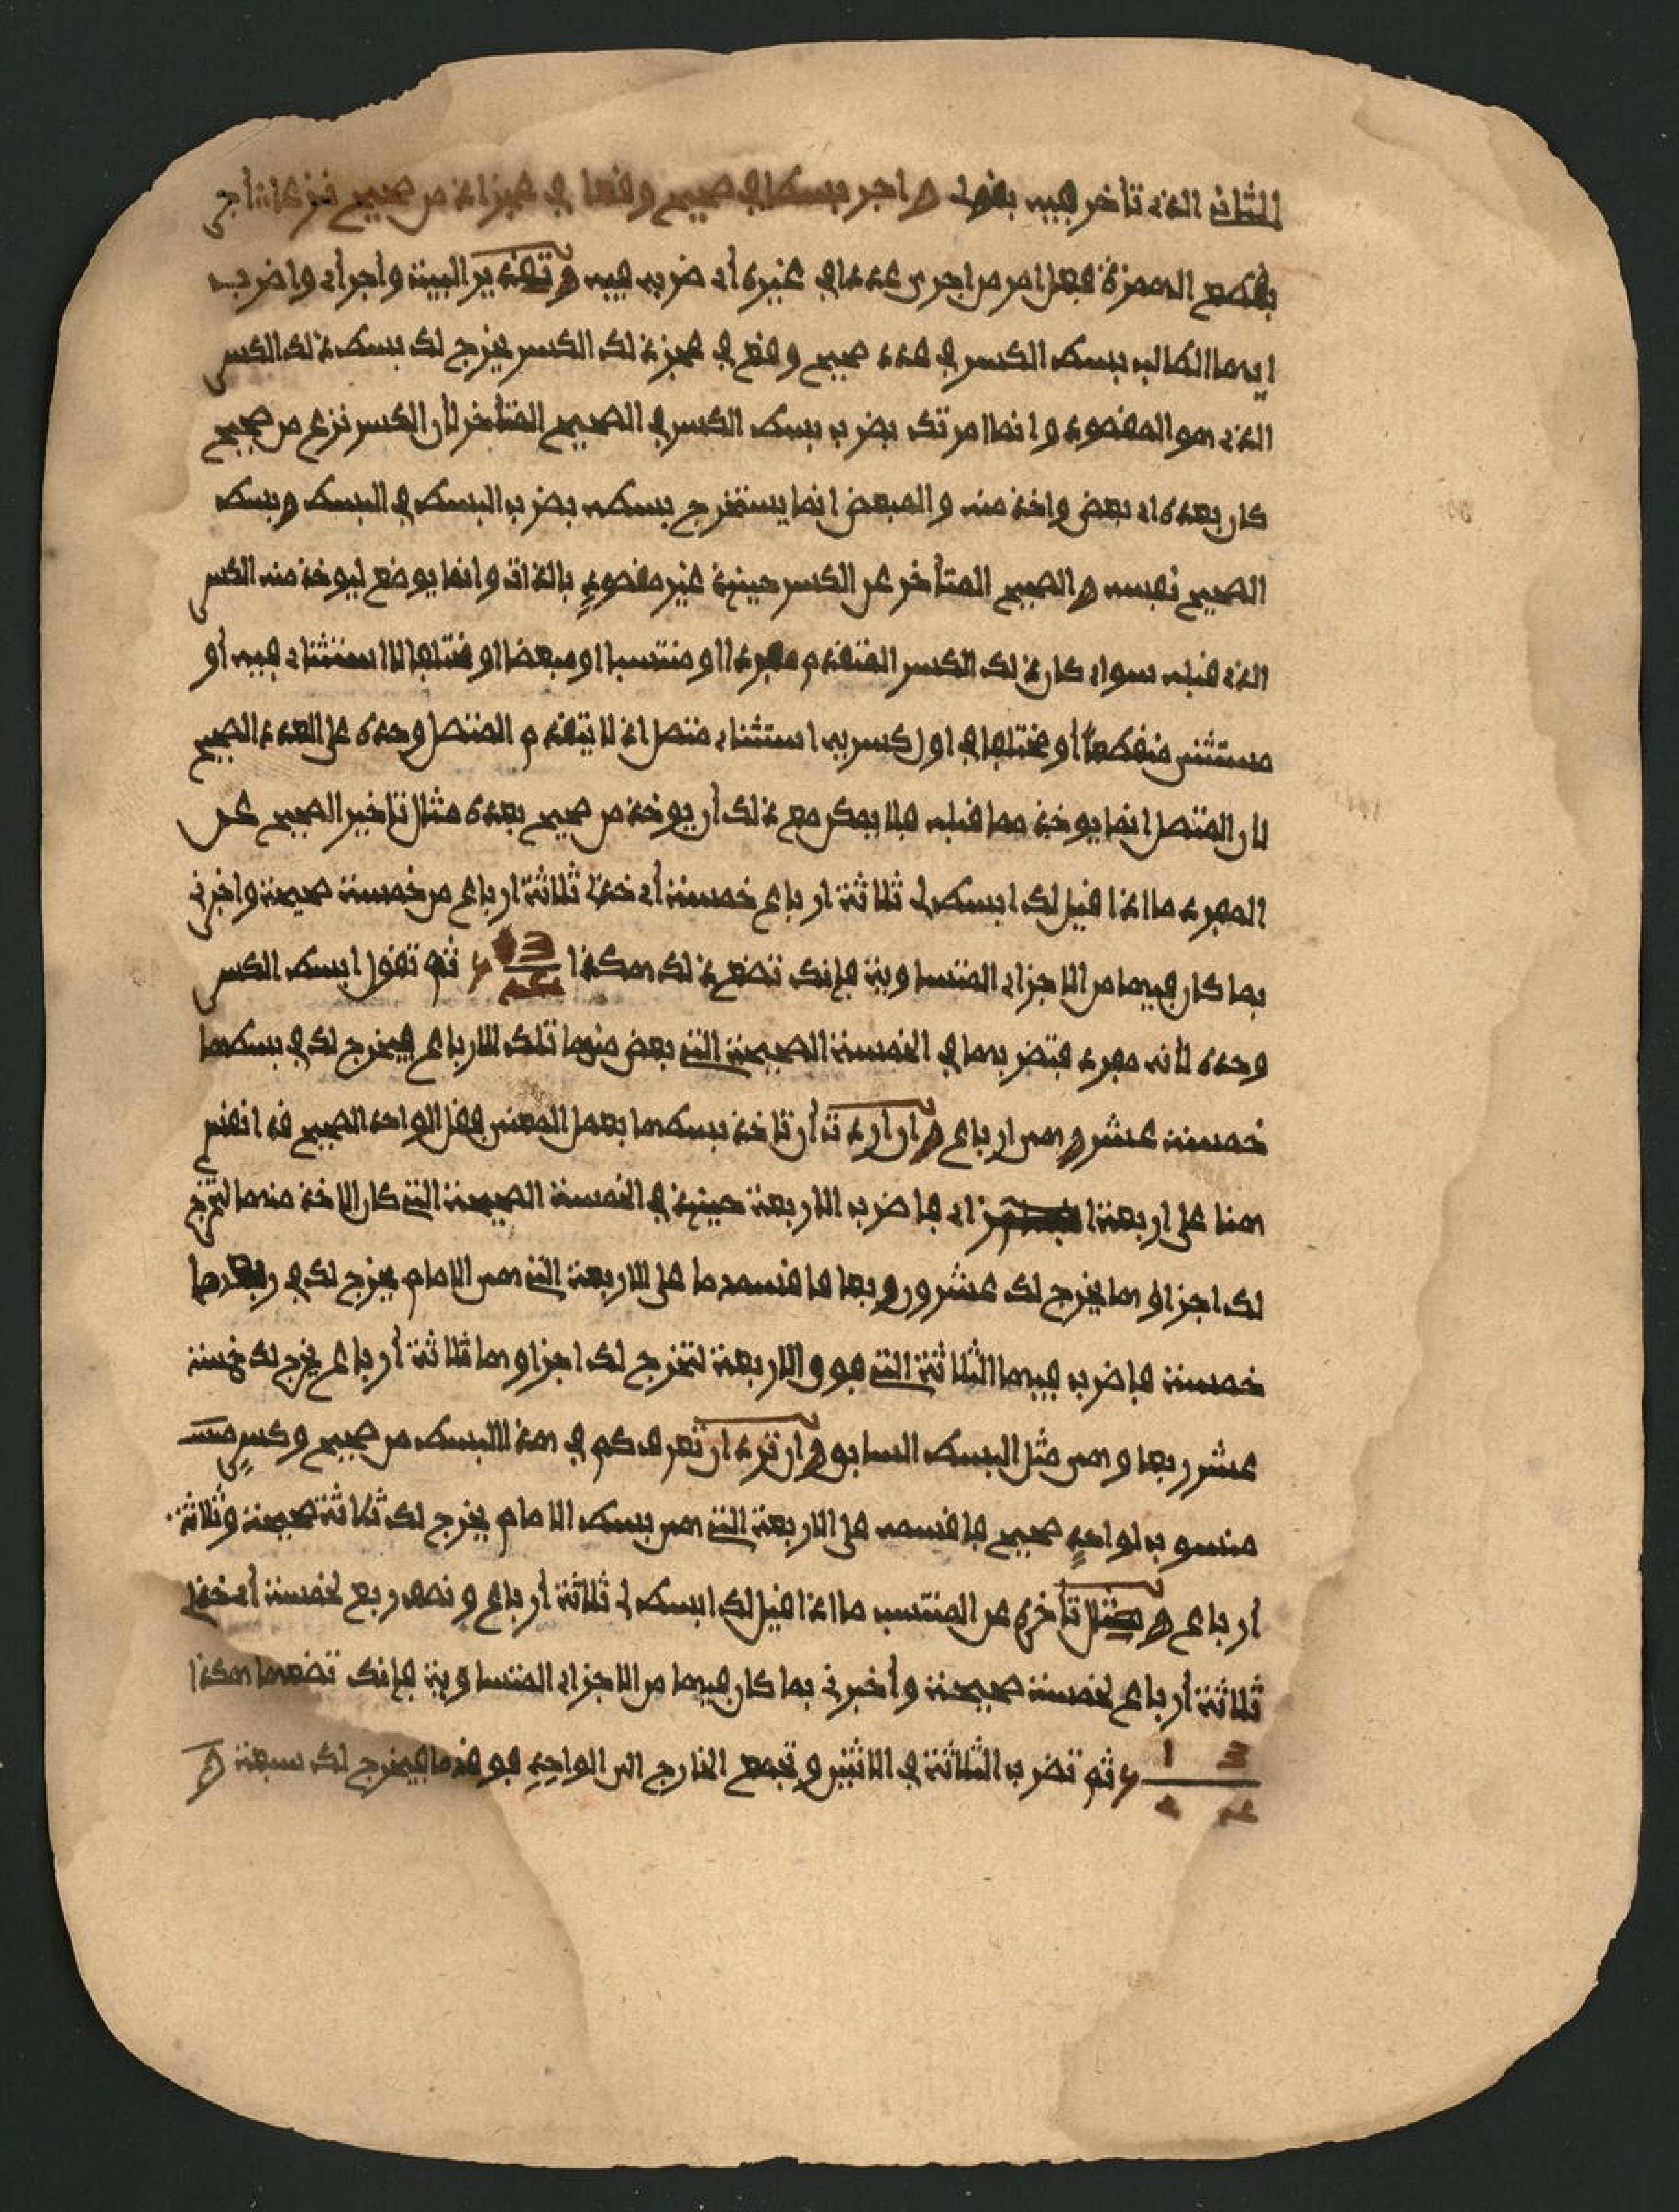 الثاني الذي تأخر فيه بقوله ه اجر بسطا في صحيح وقعا في حيزاد من صحيح نزعا أجر
بقطع الهمزة فعل امر من اجرى عددا في غيره أي ضربه فيه ه تقدير البيت وأجر أي واضرب
ايها الطالب بسط الكسر في عدد صحيح وقع في عجز ذلك الكسر يخرج لك بسط ذلك الكسر
الذي هو المقصود وانما امرتك بضرب بسط الكسر في الصحيح المتأخر لأن الكسر نزع من صحيح
كان بعده اي بعض واخذ منه والمبعض انما يستخرج بسطه بضرب البسط في البسط ه بسط
الصحيح نفسه ه الصحيح المتأخر عن الكسر حينئذ غير مقصود بالذات وانما يوضع ليوخذ منه الكسر
الذي قبله سواء كان ذلك الكسر المتقدم مفردا او منتسبا او مبعضا او مختلفا لا استثناء فيه أو
مستثنى منقطعا أو مختلفا في اول كسر به استثناء متصل اذ لا يتقدم المتصل وحده على العدد الصحيح
لان المتصل انما يوخذ مما قبله فلا يمكن مع ذلك أن يوخذ من صحيح بعده مثال تاخير الصحيح عن
المفرد ما اذا قيل لك ابسط لي ثلاثة ارباع خمسة أي خذ ثلاثة ارباع من خمسة صحيحة واخبرني
بما كان فيها من الاجزاء المتساوية فإنك تضع ذلك هكذا ثم تقول ابسط الكسر
وحده لأنه مفرد فتضربها في الخمسة الصحيحة التي بعض منها تلك الارباع فيخرج لك في بسطها
خمسة عشر ه هي ارباع ه ان اردت أن تاخذ بسطها بعمل المعنى فقل الواحد الصحيح قد انقسم
هنا على اربعة اجزاء فاضرب الاربعة حينئذ في الخمسة الصحيحة التي كان الاخذ منها لتخرج
لك اجزاؤها يخرج لك عشرون ربعا فاقسمها على الاربعة التي هي الامام يخرج لك في ربعها
خمسة فاضرب فيها الثلاثة التي فوق الاربعة لتخرج لك اجزاوها ثلاثة أرباع يخرج لك خمسة
عشر ربعا وهي مثل البسط السابق ه ان ترد ان تعرف كم في هذا البسط من صحيح وكسر
منسوب لواحد صحيح فاقسمه على الاربعة التي هي بسط الامام يخرج لك ثلاثة صحيحة وثلاثة
أرباع ه مثال تأخره عن المنتسب ما اذا قيل لك ابسط لي ثلاثة أرباع ونصف ربع لخمسة أي خذ
ثلاثة أرباع لخمسة صحيحة وأخبرني بما كان فيها من الاجزاء المتساوية فإنك تضعها هكذا
ثم تضرب الثلاثة في الاثنين وتجمع الخارج الى الواحد فوقها فيخرج لك سبعة ه